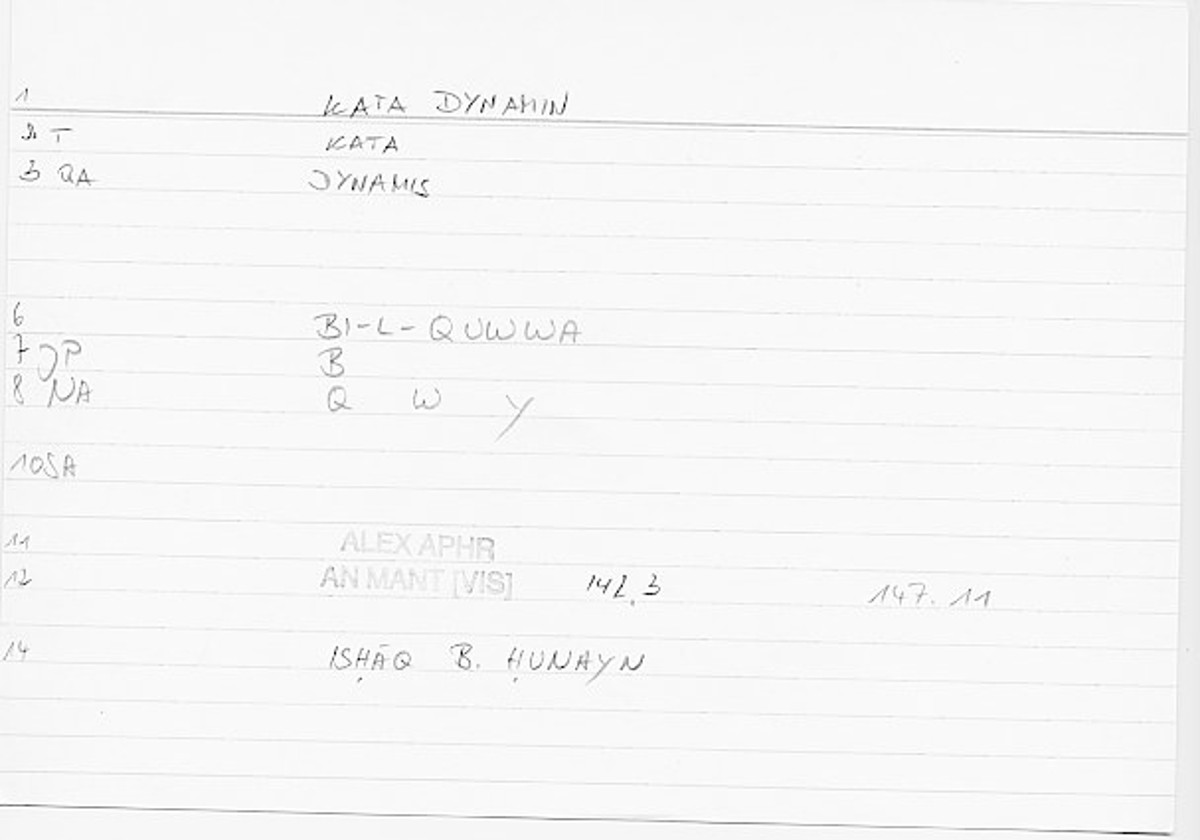 1 KATA DYNAMIN
2 T KATA
3 QA DYNAMIS
6 BI-L-QUWWA
7 JP B
8 NA Q W Y
10 SA
11 ALEX APHR
12 AN MANT [VIS] 142.3 147.11
14 ISḤĀQ B. ḤUNAYN